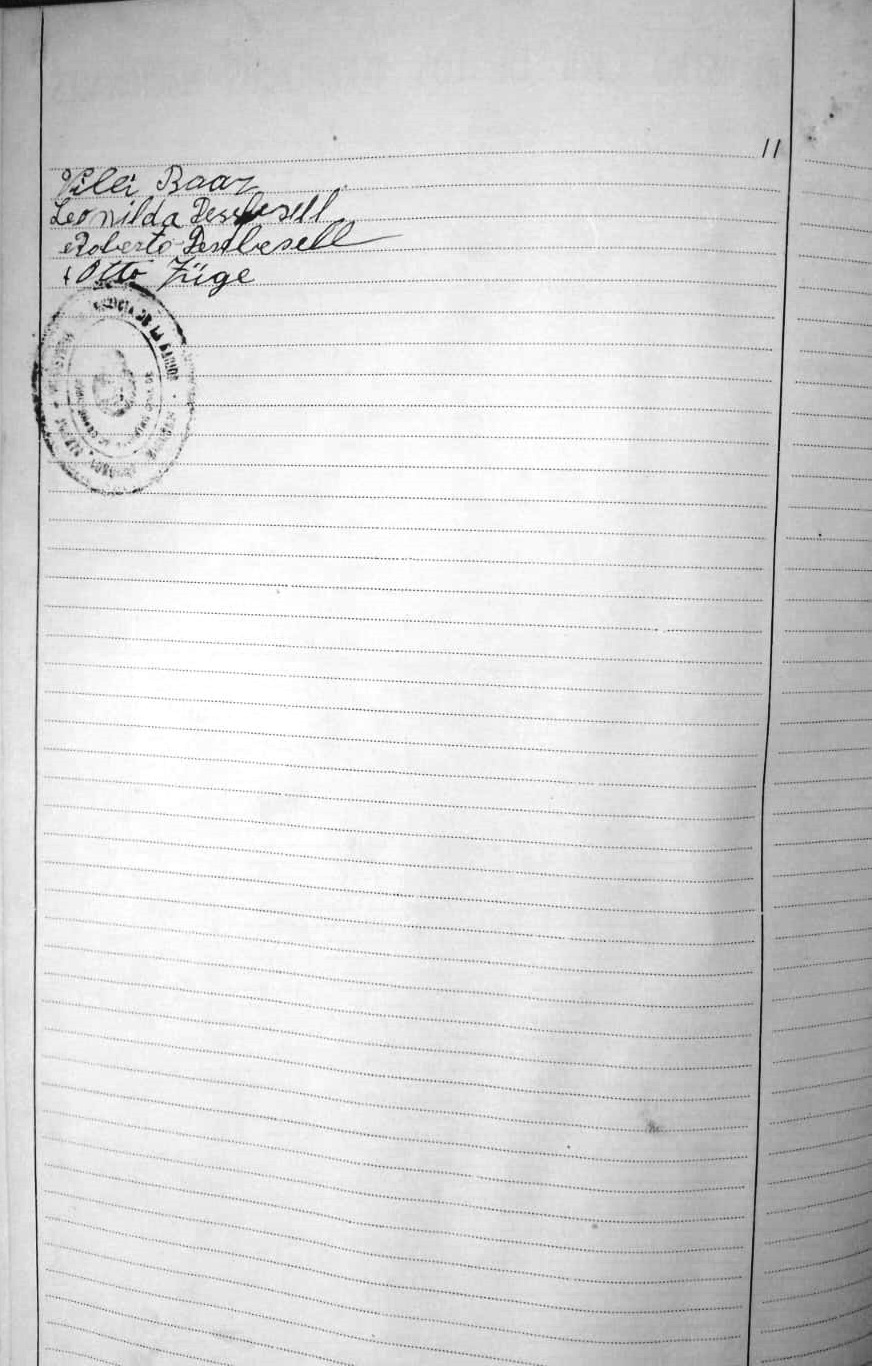 11
Vilei Baaz
Leonilda Dessbesell
Roberto Dessbesell
Otto Züge
DE LA